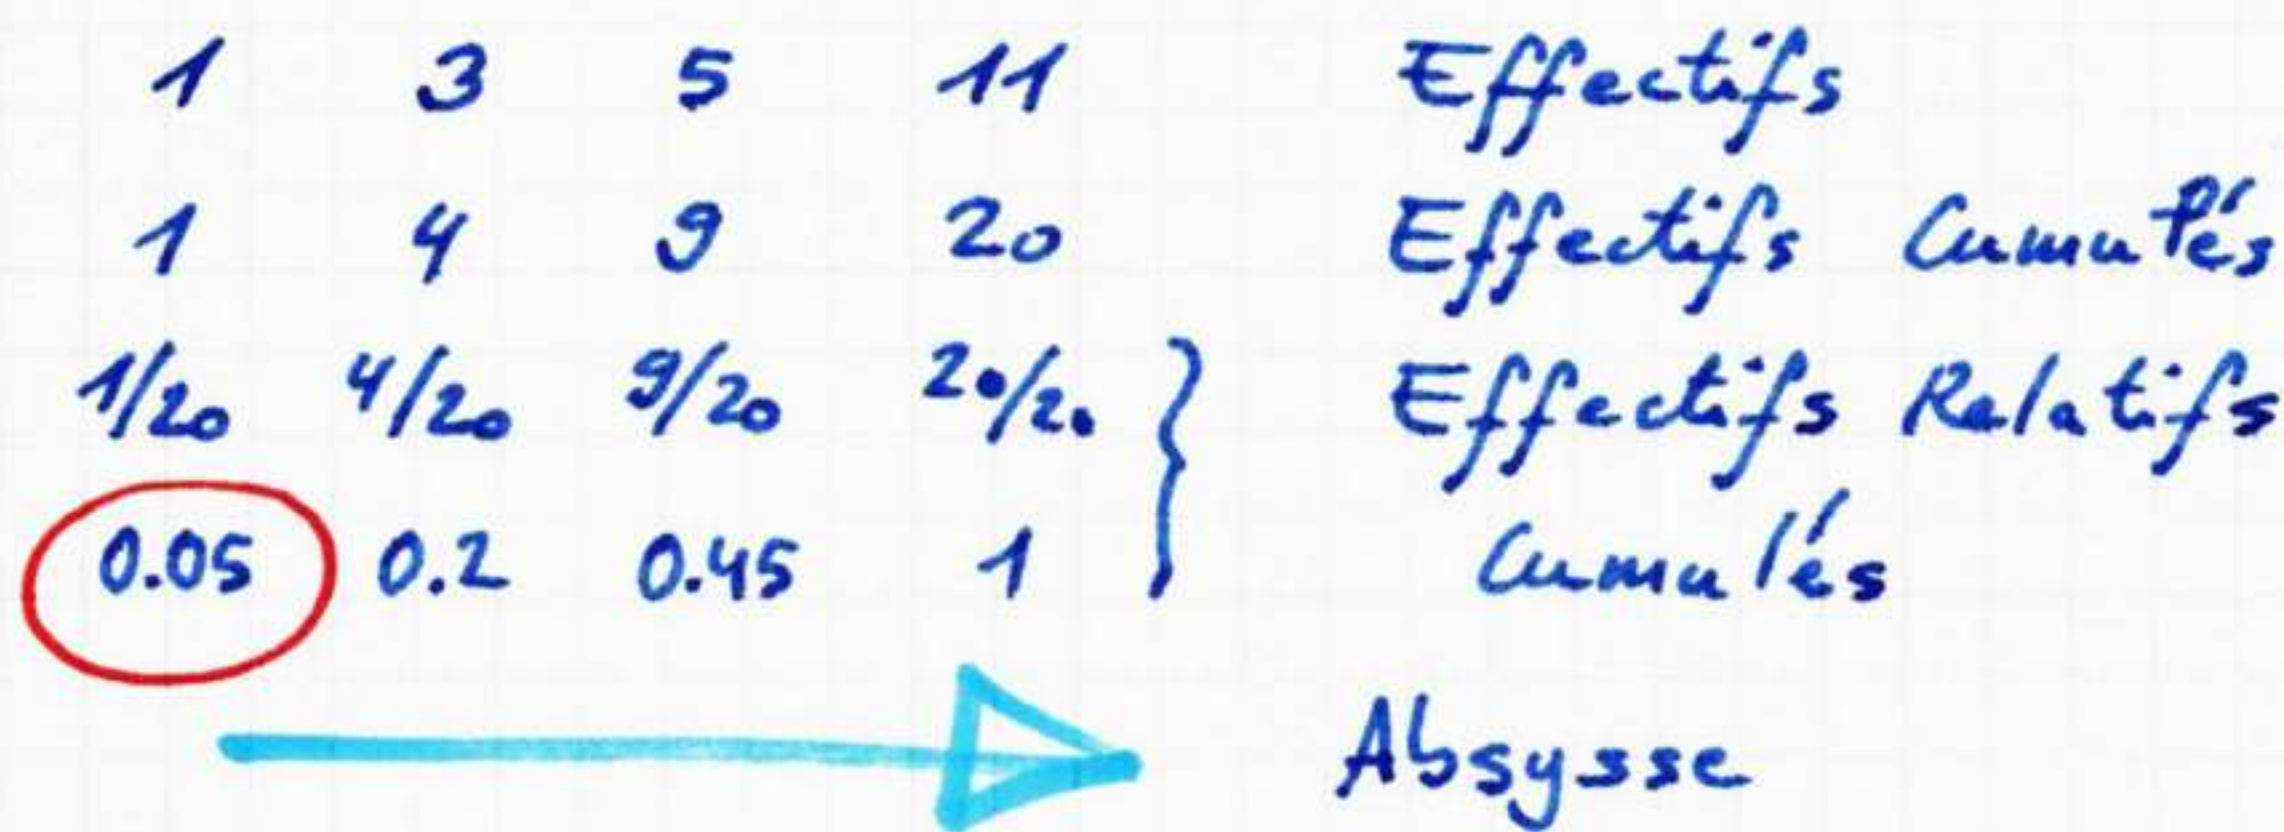 1 3 5 11 Effectifs
1 4 9 20 Effectifs Cumulés
1/20 4/20 9/20 20/20 } Effectifs Relatifs
0.05 0.2 0.45 1 Cumulés
Absysse